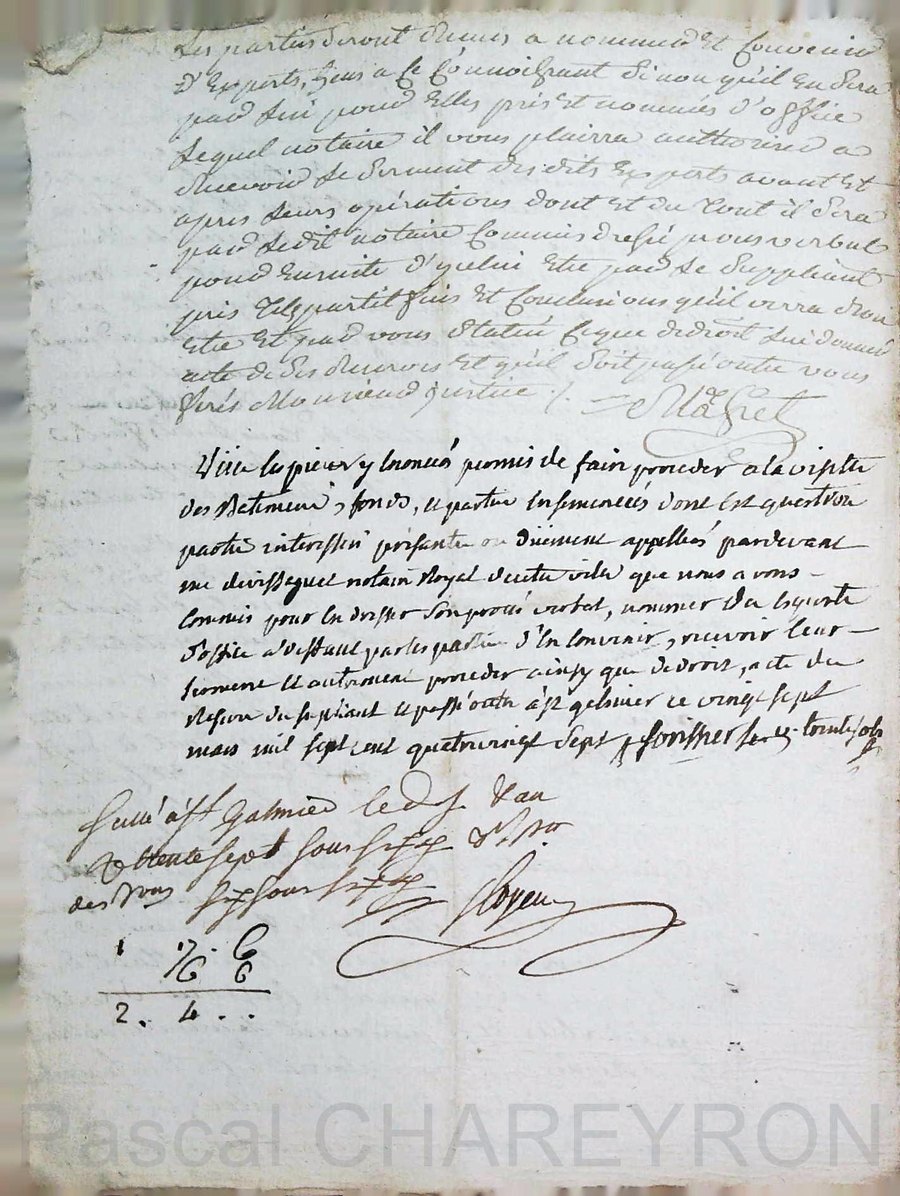 les parties seront tenues a nommer et convenir
d'Experts, gens a ce connoissant sinon qu'il en sera
par lui pour Elles pris et nommés d'office
lequel notaire il vous plairra authoriser a
recevoir le serment des dits Experts avant et
apres leurs opérations dont et du tout il sera
par ledit notaire commis dressé procus verbal
pour ensuite d'ycelui etre par le suppliant
pris telz partit fins et conclusions qu'il verra bon
etre et par vous statué ce que de droit lui donner
acte de ses reserves et qu'il soit passé outre vous
ferés Monsieur justice
Vû les pieces y énoncés permis de faire proceder a la visitte
des Batiments, fonds, et parties Ensemencés dont est question
partie interessée présente ou duement appellées pardevant
me notaire Royal de cette ville que nous avons
commis pour en dresser son procés verbal, nommer des Experts
d'office a deffaut par les parties d'en convenir, recevoir leur
serment et autrement proceder ainsy que de droit, acte des
Reserves du supliant et passé outre a st galmier ce vingt sept
mars mil sept cent quatre vingt sept
Scellé a st Galmier le d. j. & an
R trente sept sous six
des sous six sous six
1 17 6
6 6
2 . 4 . .
Pascal CHAREYRON